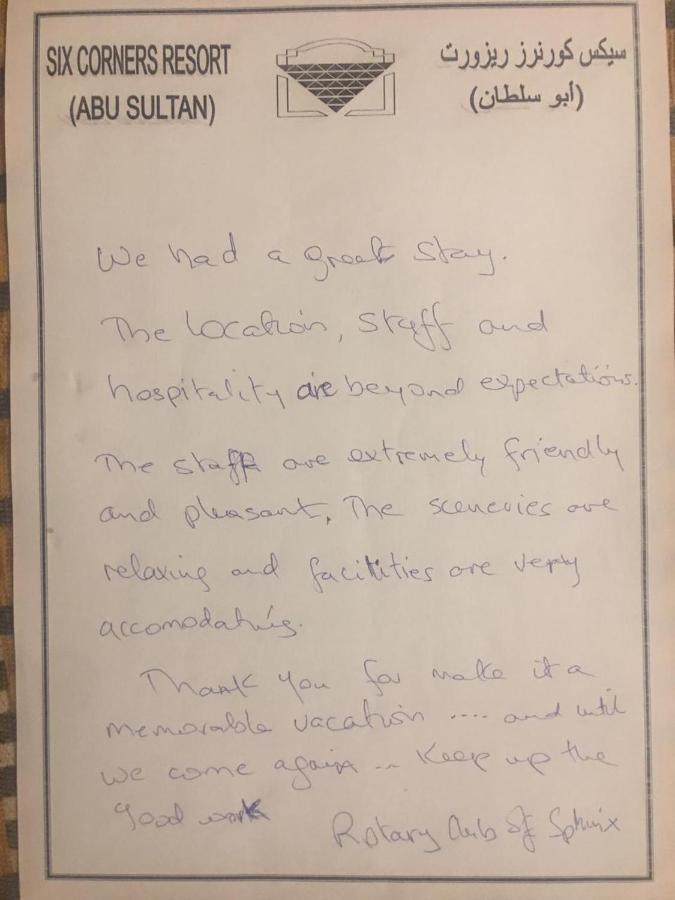 SIX CORNERS RESORT
(ABU SULTAN)
سيكس كورنرز ريزورت
(أبو سلطان)
We had a great stay.
The location, staff and
hospitality are beyond expectations.
The staff are extremely friendly
and pleasant, The sceneries are
relaxing and facilities are very
accomodating.
Thank you for make it a
memorable vacation .... and until
we come again ... Keep up the
good work
Rotary Club of Sphinx